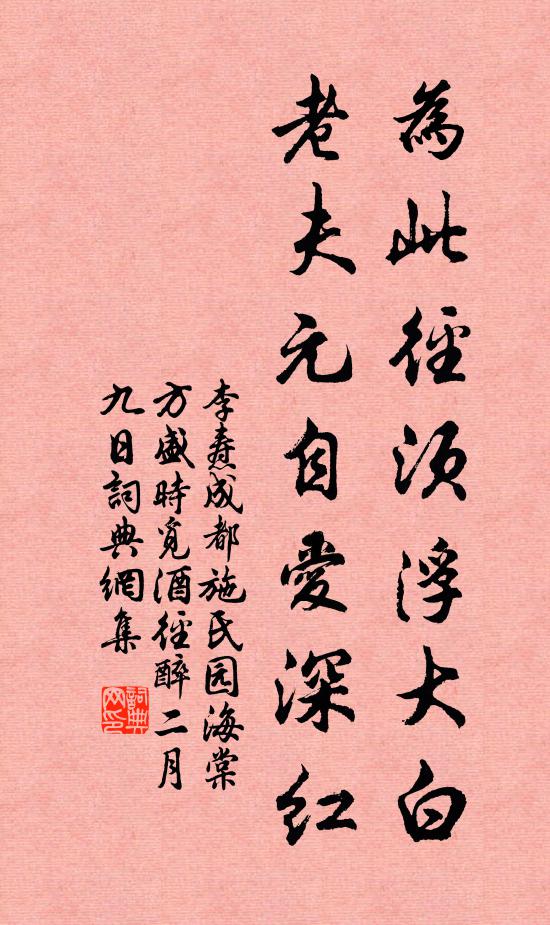 為此徑須浮大白
老夫元自愛深紅
李燾成都施氏园海棠
方盛時覓酒徑醉二月
九日詞典網集
詞典网印